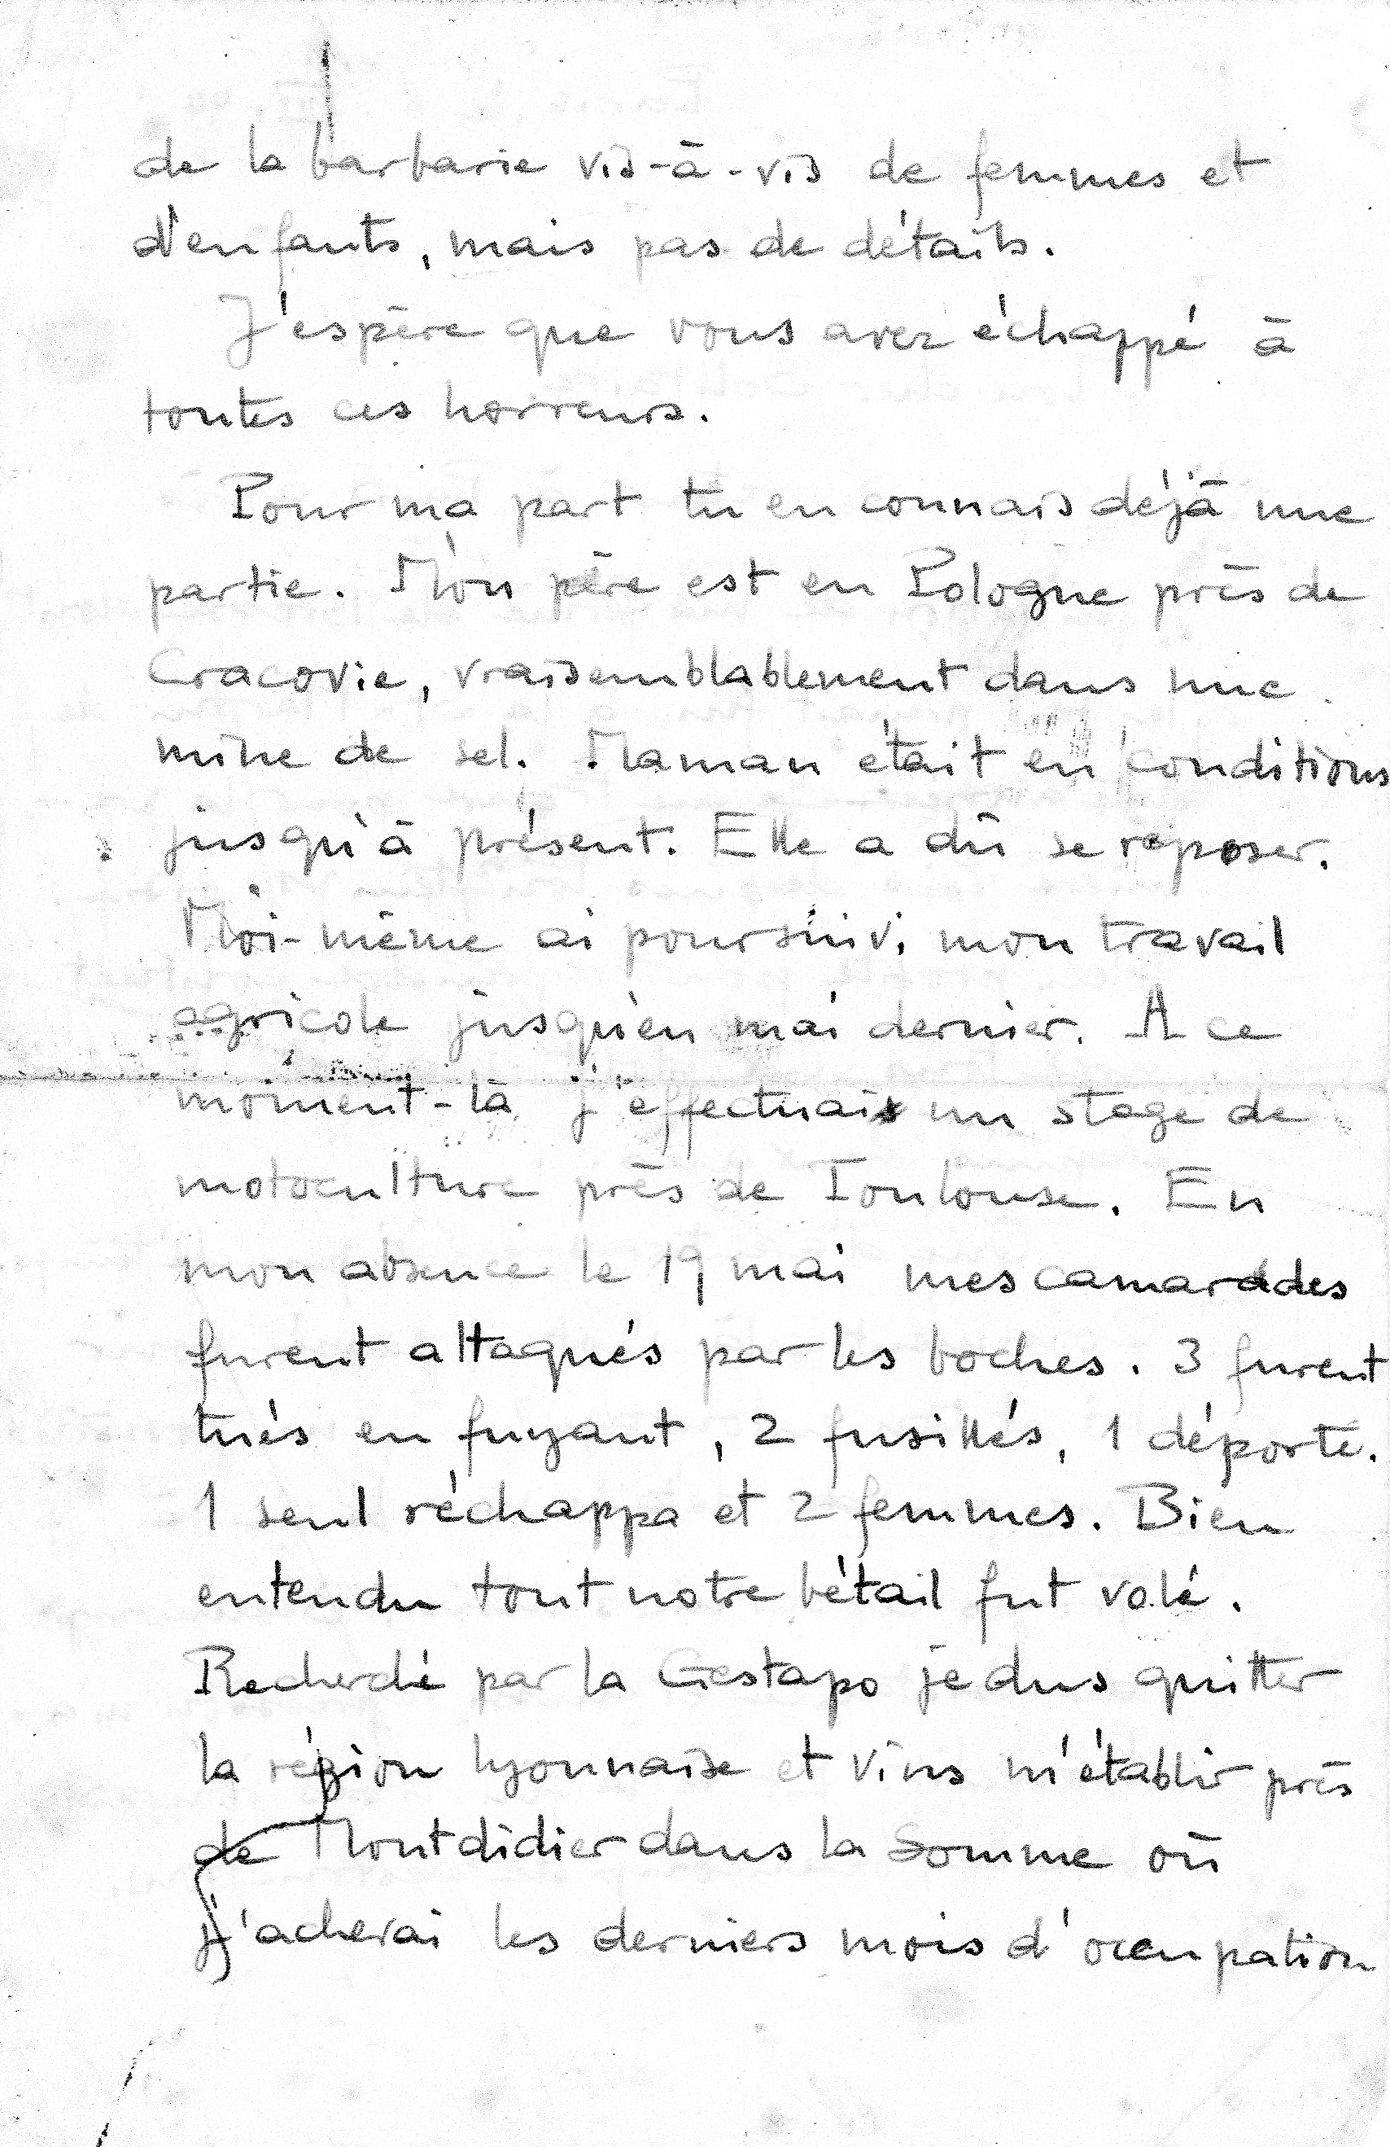 de la barbarie vis-à-vis de femmes et
d'enfants, mais pas de détails.
J'espère que vous avez échappé à
toutes ces horreurs.
Pour ma part tu en connais déjà une
partie. Mon père est en Pologne près de
Cracovie, vraisemblablement dans une
mine de sel. Maman était en conditions
jusqu'à présent. Elle a dû se reposer.
Moi-même ai poursuivi mon travail
agricole jusqu'en mai dernier. A ce
moment-là j'effectuais un stage de
motoculture près de Toulouse. En
mon absence le 19 mai mes camarades
furent attaqués par les boches. 3 furent
tués en fuyant, 2 fusillés, 1 déporté.
1 seul réchappa et 2 femmes. Bien
entendu tout notre bétail fut volé.
Recherché par la Gestapo je dus quitter
la région lyonnaise et vins m'établir près
de Montdidier dans la Somme où
j'achevai les derniers mois d'occupation